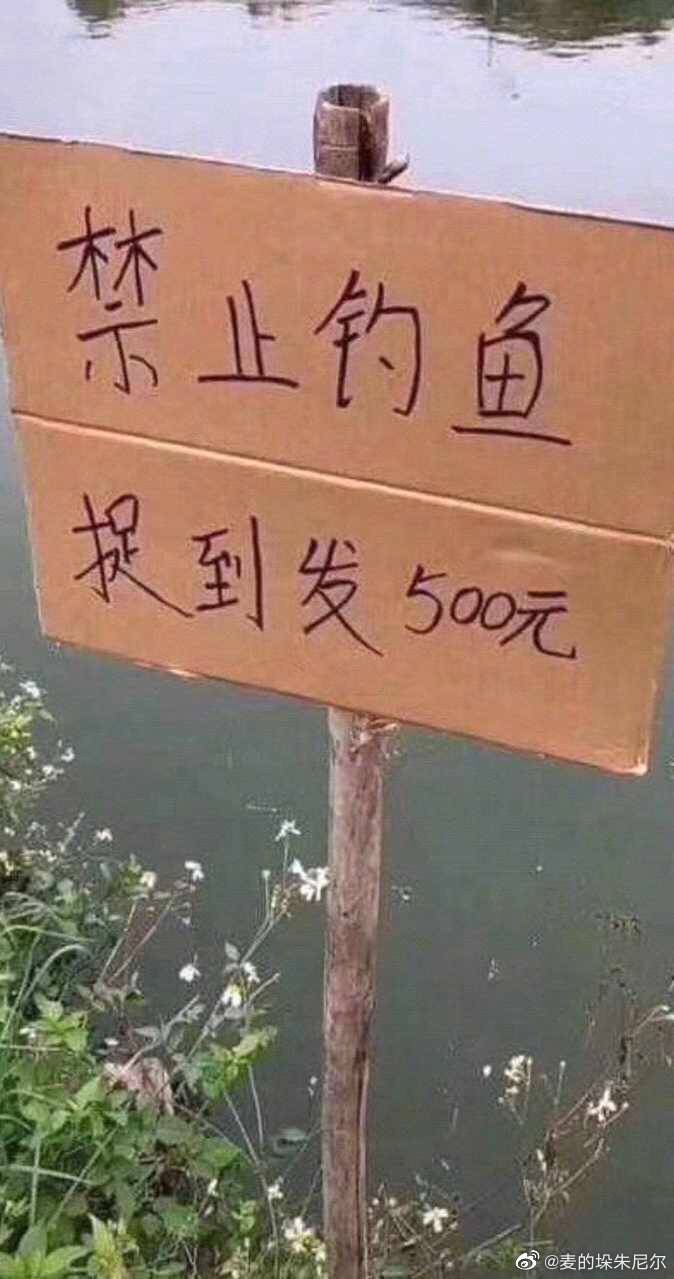 禁止钓鱼
捉到发500元
@麦的垛朱尼尔